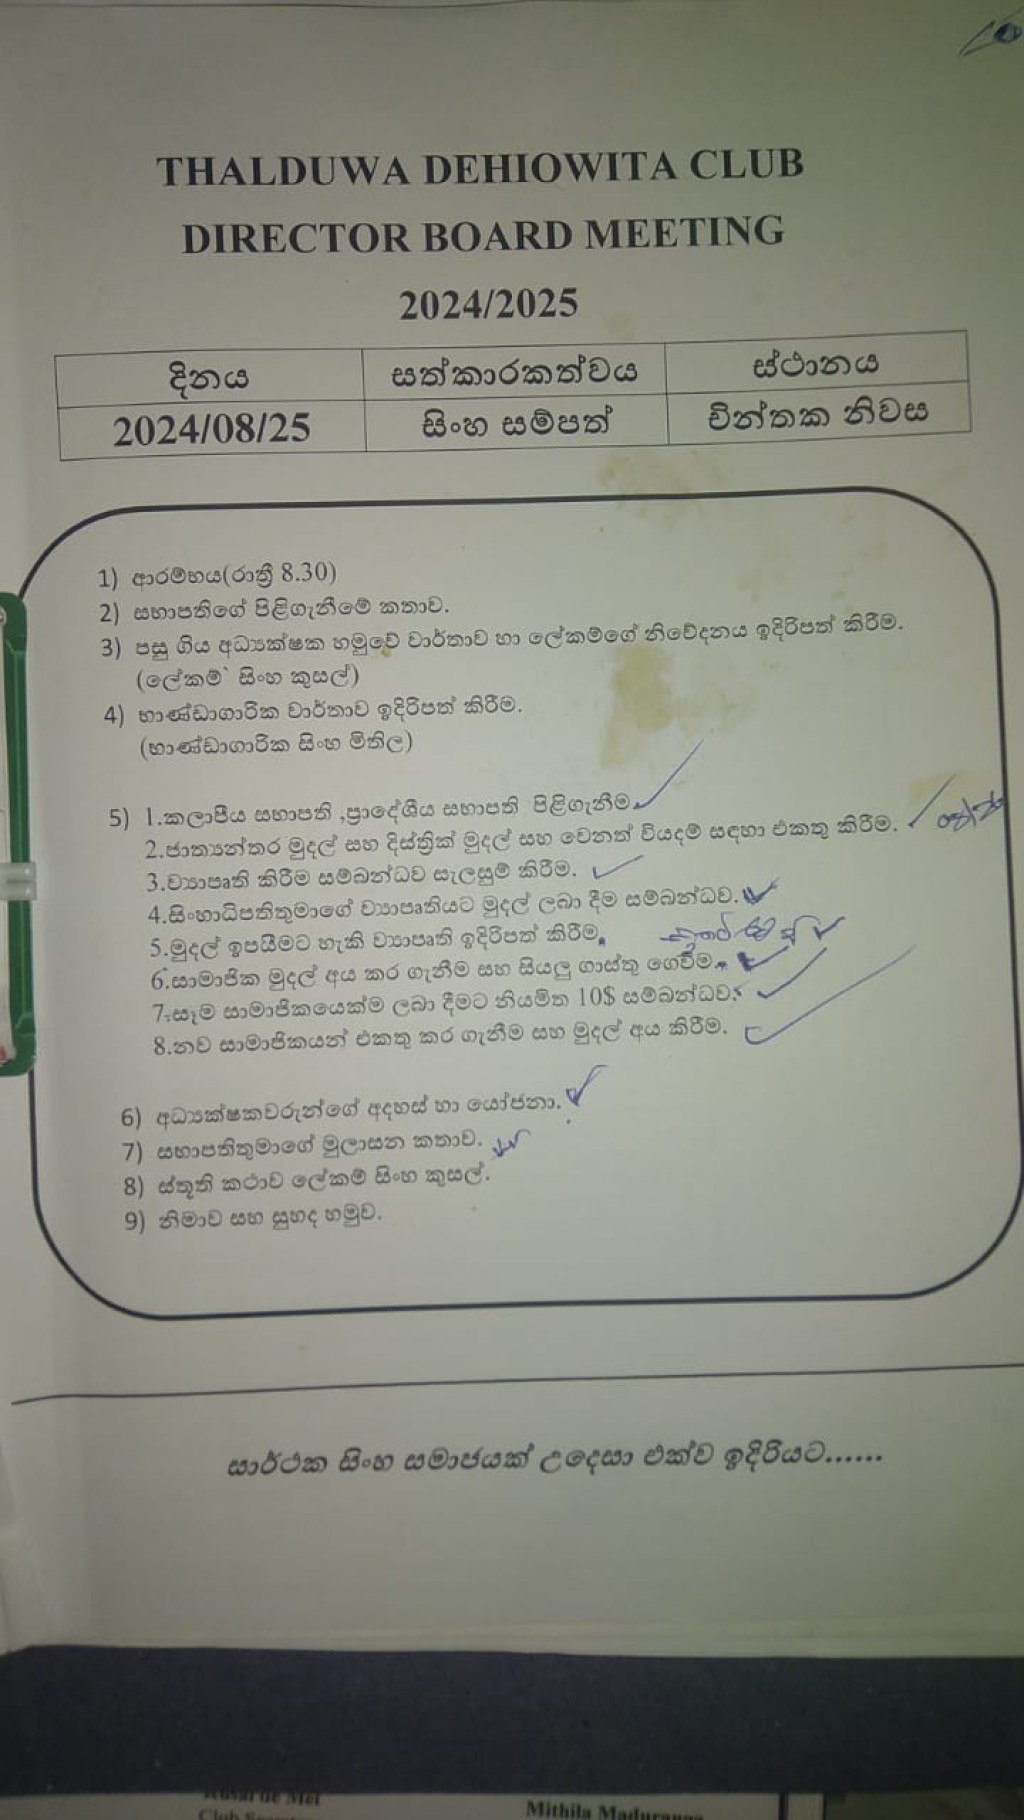 THALDUWA DEHIOWITA CLUB
DIRECTOR BOARD MEETING
2024/2025
දිනය සත්කාරකත්වය ස්ථානය
2024/08/25 සිංහ සම්පත් චින්තක නිවස
1) ආරම්භය(රාත්‍රී 8.30)
2) සභාපතිගේ පිළිගැනීමේ කතාව.
3) පසු ගිය අධ්‍යක්ෂක හමුවේ වාර්තාව හා ලේකම්ගේ නිවේදනය ඉදිරිපත් කිරීම.
(ලේකම් සිංහ කුසල්)
4) භාණ්ඩාගාරික වාර්තාව ඉදිරිපත් කිරීම.
(භාණ්ඩාගාරික සිංහ මිතිල)
5) 1.කලාපීය සභාපති ,ප්‍රාදේශීය සභාපති පිළිගැනීම
2.ජාත්‍යන්තර මුදල් සහ දිස්ත්‍රික් මුදල් සහ වෙනත් වියදම් සඳහා එකතු කිරීම.
3.ව්‍යාපෘති කිරීම සම්බන්ධව සැලසුම් කිරීම.
4.සිංහාධිපතිතුමාගේ ව්‍යාපෘතියට මුදල් ලබා දීම සම්බන්ධව.
5.මුදල් ඉපයීමට හැකි ව්‍යාපෘති ඉදිරිපත් කිරීම.
6.සාමාජික මුදල් අය කර ගැනීම සහ සියලු ගාස්තු ගෙවීම.
7.සෑම සාමාජිකයෙක්ම ලබා දීමට නියමිත 10$ සම්බන්ධව.
8.නව සාමාජිකයන් එකතු කර ගැනීම සහ මුදල් අය කිරීම.
6) අධ්‍යක්ෂකවරුන්ගේ අදහස් හා යෝජනා.
7) සභාපතිතුමාගේ මුලාසන කතාව.
8) ස්තූති කථාව ලේකම් සිංහ කුසල්.
9) නිමාව සහ සුහද හමුව.
සාර්ථක සිංහ සමාජයක් උදෙසා එක්ව ඉදිරියට......
de Mel
Club
Mithila Maduranga